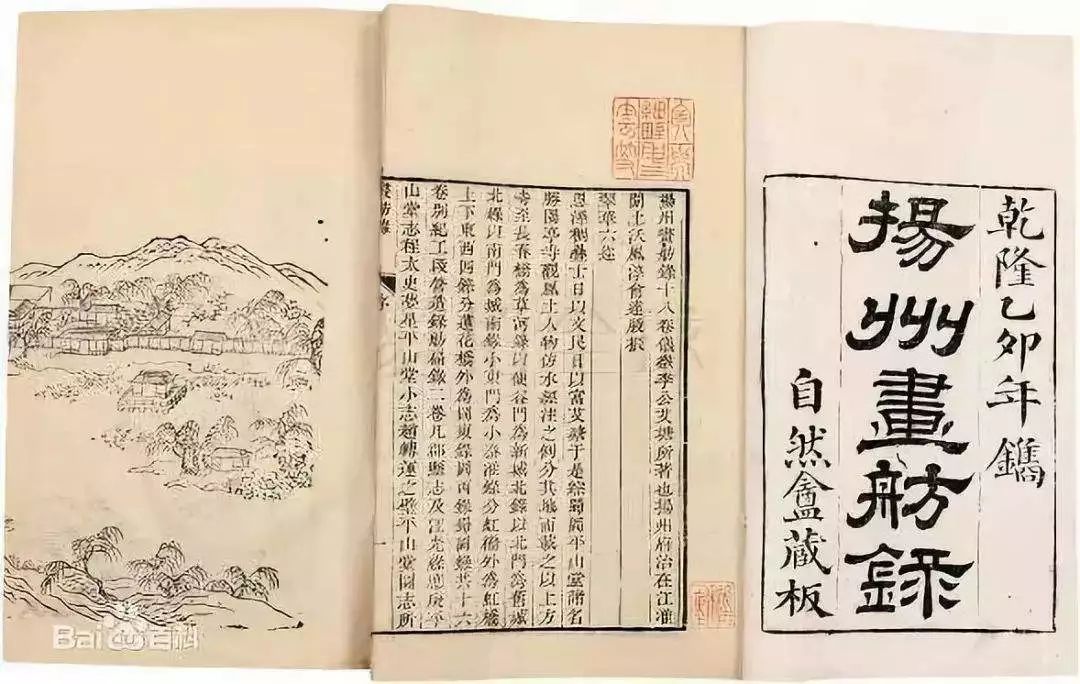 乾隆乙卯年鐫
揚州畫舫錄
自然盦藏板
揚州畫舫錄十八卷儀徵李公艾塘所著也揚州府治在江淮
間土沃風淳會達殷振
翠華六巡
恩澤稠疊士日以文民日以富艾塘于是綜蜀岡平山堂諸名
勝園亭寺觀風土人物仿水經注之例分其地而載之以上方
寺至長春橋為草河錄以便益門為新城北錄以北門為舊城
北錄以南門為城南錄小東門為小秦淮錄分虹橋外為虹橋
上下東西四錄分蓮花橋外為岡東錄岡西錄蜀岡錄共十六
卷別紀工段營造錄舫扁錄二卷凡郡縣志及汪光祿應庚平
山堂志程太史夢星平山堂小志趙轉運之璧平山堂圖志所
畫舫錄
序
Bai百科